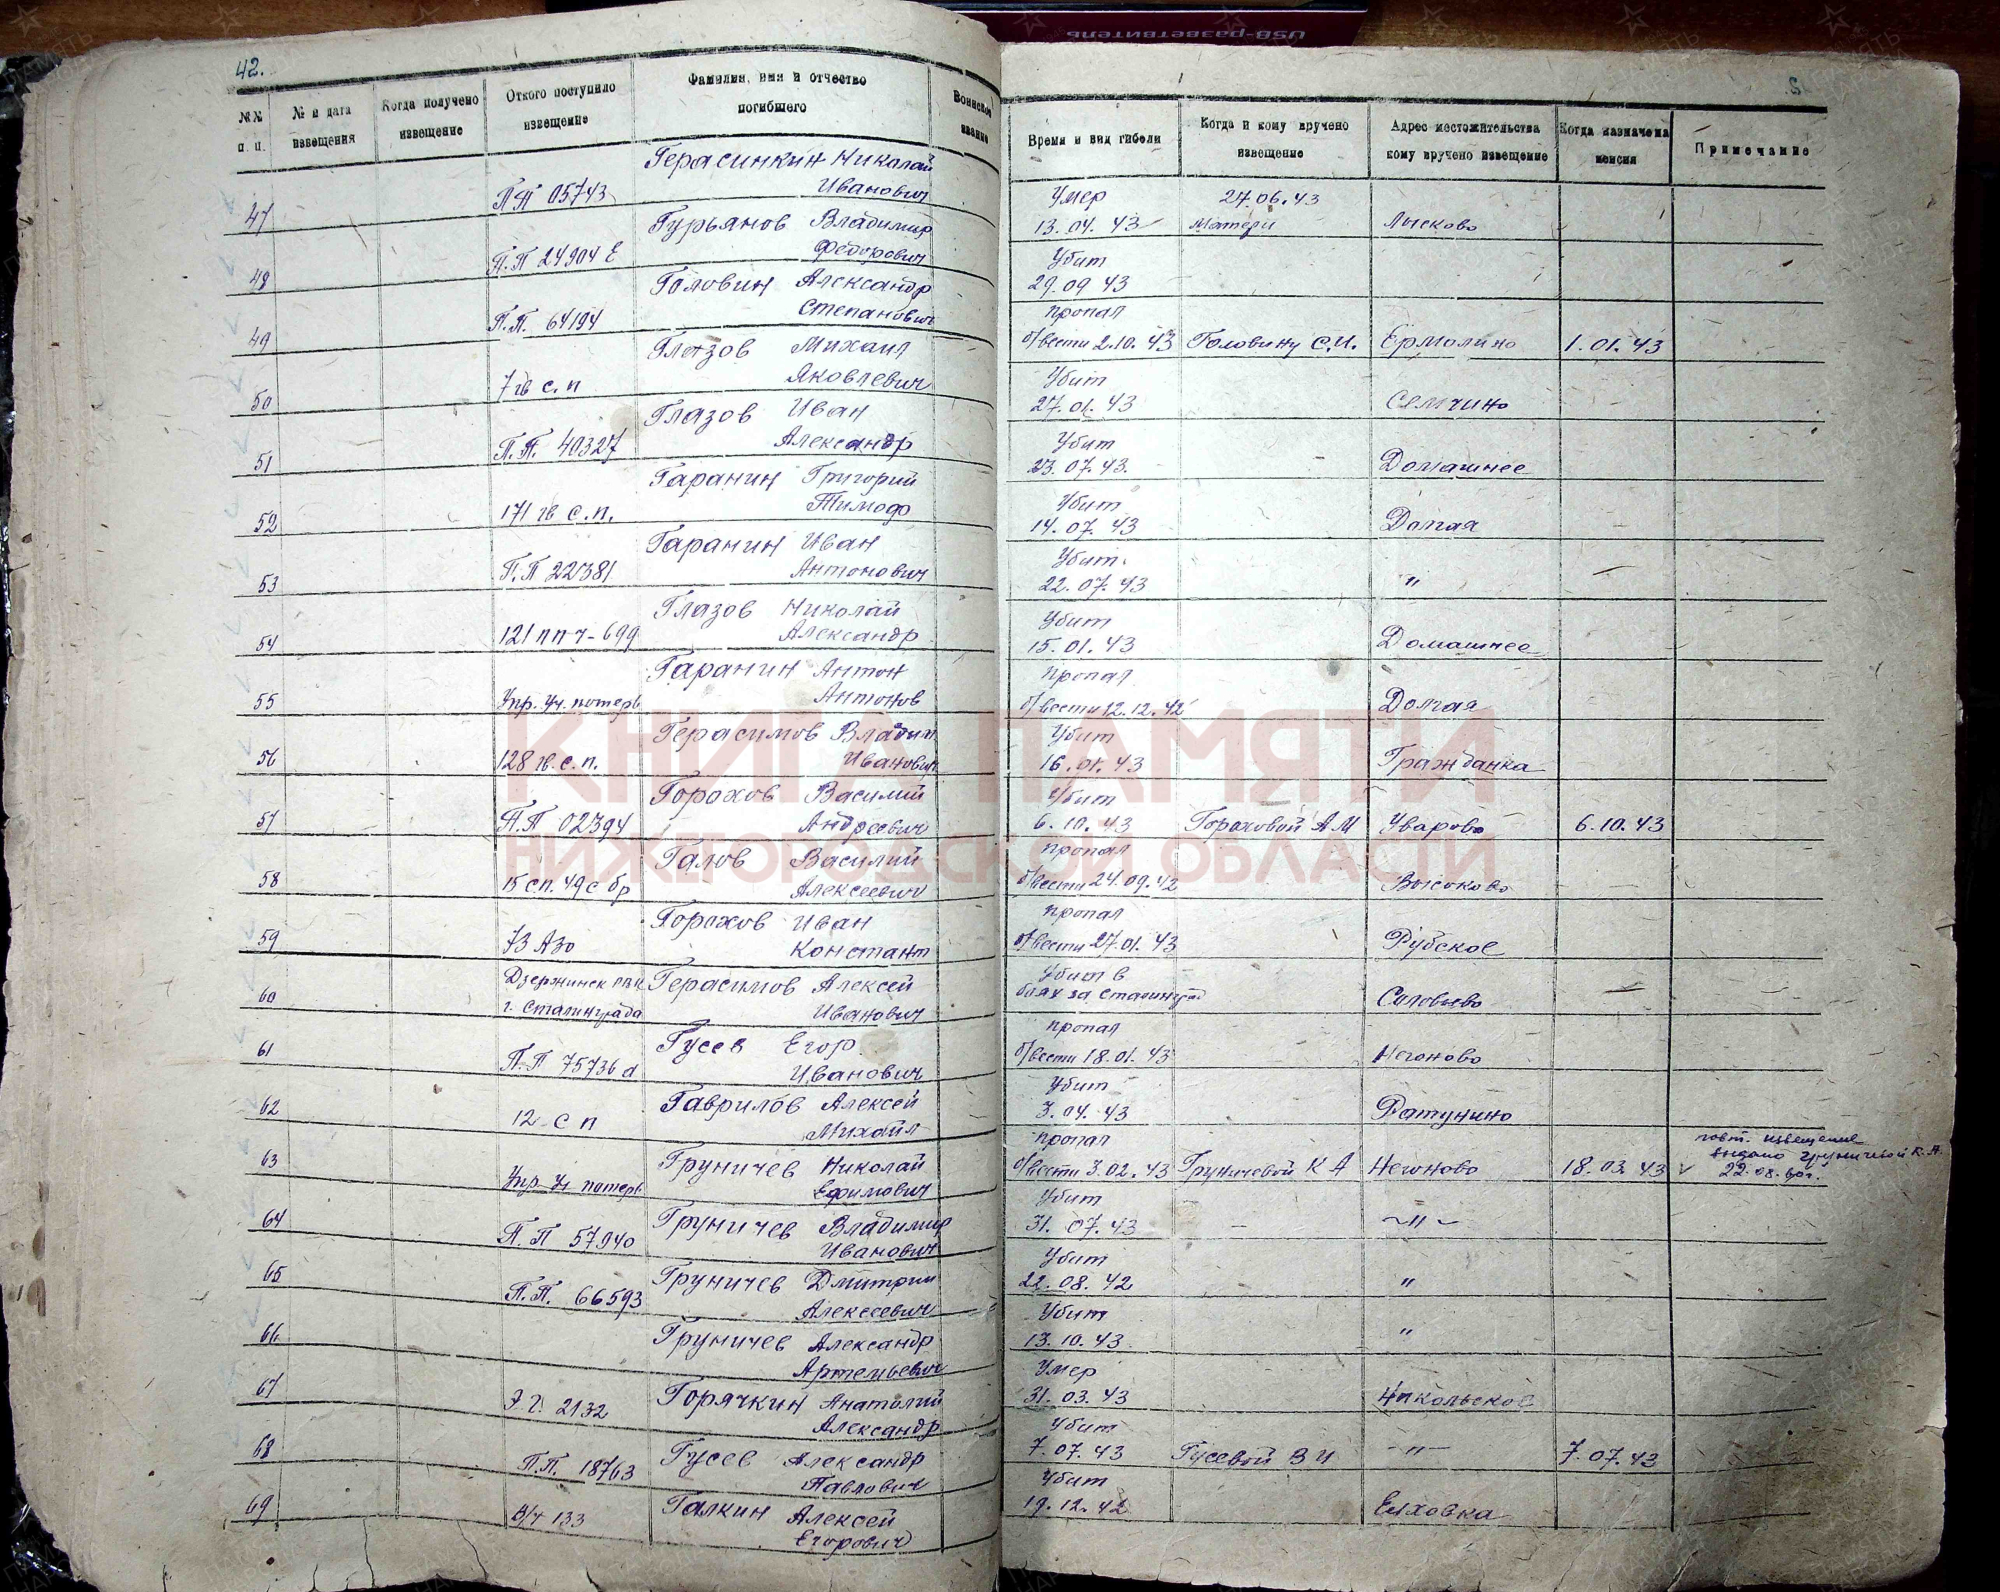 42.
№№ п. п. № и дата извещения Когда получено извещение Откого поступило извещение Фамилия, имя и отчество погибшего Воинское звание Время и вид гибели Когда и кому вручено извещение Адрес местожительства кому вручено извещение Когда назначена пенсия Примечание
47 ПП 05743 Герасинкин Николай Иванович Умер 13.04.43 27.06.43 матери Лысково
48 П.П 24904 Е Гурьянов Владимир Федорович Убит 29.09 43
49 П.П. 64194 Головин Александр Степанович пропал б/вести 2.10.43 Головину С.И. Ермолино 1.01.43
50 7 гв с.п Глазов Михаил Яковлевич Убит 27.01.43 Семчино
51 П.П. 40327 Глазов Иван Александр Убит 23.07.43. Домашнее
52 171 гв с.п. Гаранин Григорий Тимоф Убит 14.07.43 Долгая
53 П.П 22381 Гаранин Иван Антонович Убит. 22.07.43 "
54 121 ппч-699 Глазов Николай Александр Убит 15.01.43 Домашнее
55 Упр. уч. потерь Гаранин Антон Антонов пропал б/вести 12.12.42 Долгая
56 128 гв. с. п. Герасимов Владим Иванович Убит 16.01.43 Гражданка
57 П.П 02394 Горохов Василий Андреевич Убит 6.10.43 Гороховой А М Уварово 6.10.43
58 15 сп. 49 с бр Галов Василий Алексеевич пропал б/вести 24.09.42 Высоково
59 73 Азо Горохов Иван Констант пропал б/вести 27.01.43 Рубское
60 Дзержинск РВК г. Сталинграда Герасимов Алексей Иванович Убит в боях за Сталинград Соловьево
61 П.П 75736 д Гусев Егор Иванович пропал б/вести 18.01.43 Негоново
62 12 с п Гаврилов Алексей Михайл Убит 3.04.43 Ратунино
63 Упр. уч потерь Груничев Николай Ефимович пропал б/вести 3.02.43 Груничевой К А Негоново 18.03.43 v повт. извещение выдано Груничевой К.А. 22.08.60г.
64 П.П 57940 Груничев Владимир Иванович Убит 31.07.43 – ~"~
65 П.П. 66593 Груничев Дмитрий Алексеевич Убит 22.08.42 "
66 Груничев Александр Артемьевич Убит 13.10.43 "
67 Э.Г. 2132 Горячкин Анатолий Александр Умер 31.03.43 Никольское
68 П.П. 18763 Гусев Александр Павлович Убит 7.07.43 Гусевой В И -"- 7.07.43
69 в/ч 133 Галкин Алексей Егорович Убит 19.12.42 Елховка
КНИГА ПАМЯТИ
НИЖГОРОДСКОЙ ОБЛАСТИ
USB-разветвитель